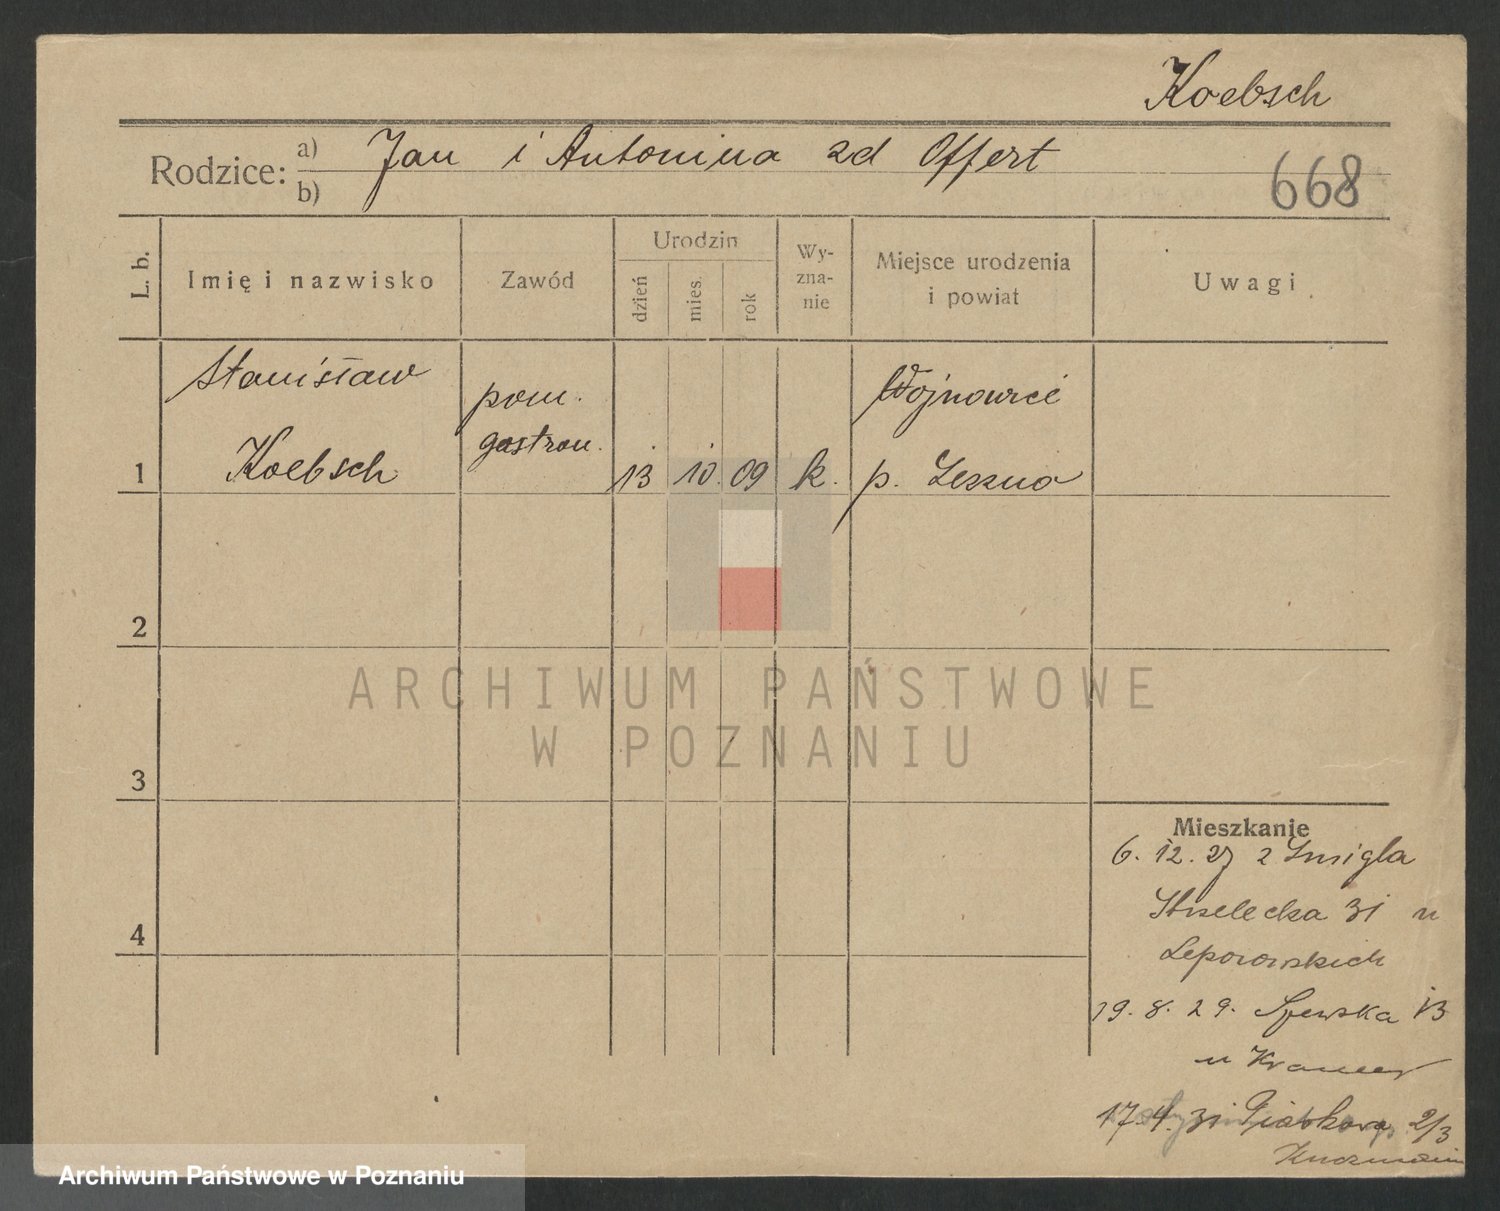 Koebsch
Rodzice: a) Jan i Antonina zd Offert
b)
668
L. b.
Imię i nazwisko
Zawód
Urodzin
dzień
mies.
rok
Wy-
zna-
nie
Miejsce urodzenia
i powiat
Uwagi
Stanisław
Koebsch
pom.
gastron.
1
13
10.
09
k.
Wojnowice
p. Leszno
2
3
4
Mieszkanie
6. 12. 27 z Śmigla
Strzelecka 31 u
Leporowskich
19. 8. 29. Szewska 13
u Kramer
17. 4. 31 Piaskowa 2/3
ARCHIWUM PAŃSTWOWE
W POZNANIU
Archiwum Państwowe w Poznaniu